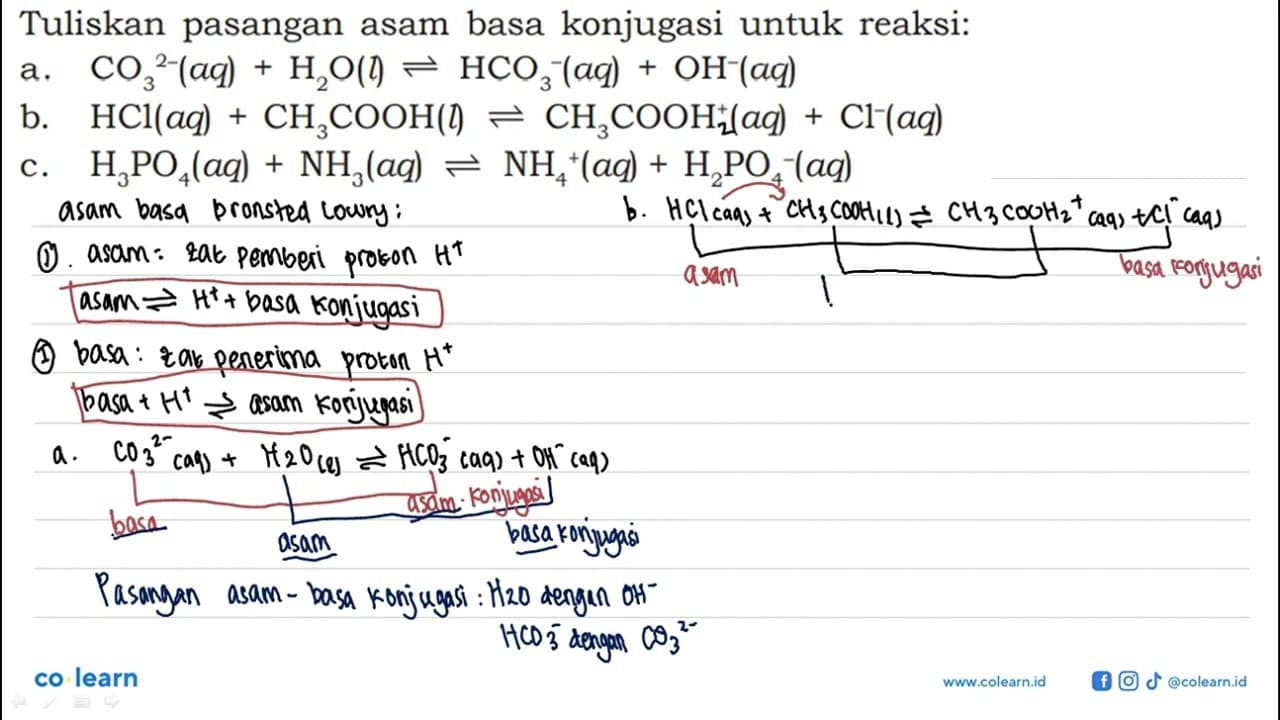 Tuliskan pasangan asam basa konjugasi untuk reaksi:
a. CO₃²⁻(aq) + H₂O(l) ⇌ HCO₃⁻(aq) + OH⁻(aq)
b. HCl(aq) + CH₃COOH(l) ⇌ CH₃COOH₂⁺(aq) + Cl⁻(aq)
c. H₃PO₄(aq) + NH₃(aq) ⇌ NH₄⁺(aq) + H₂PO₄⁻(aq)
asam basa bronsted lowry :
①. asam = zat pemberi proton H⁺
asam ⇌ H⁺ + basa konjugasi
② basa : zat penerima proton H⁺
basa + H⁺ ⇌ asam konjugasi
a. CO₃²⁻(aq) + H₂O(l) ⇌ HCO₃⁻(aq) + OH⁻(aq)
basa asam konjugasi
asam basa konjugasi
Pasangan asam - basa konjugasi : H₂O dengan OH⁻
HCO₃⁻ dengan CO₃²⁻
b. HCl(aq) + CH₃COOH(l) ⇌ CH₃COOH₂⁺(aq) + Cl⁻(aq)
asam basa konjugasi
co learn
www.colearn.id
@colearn.id